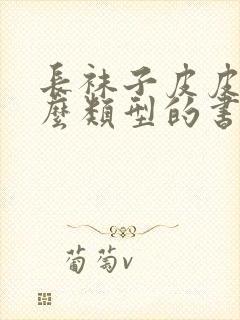 長袜子皮皮
麼類型的書
葡萄v